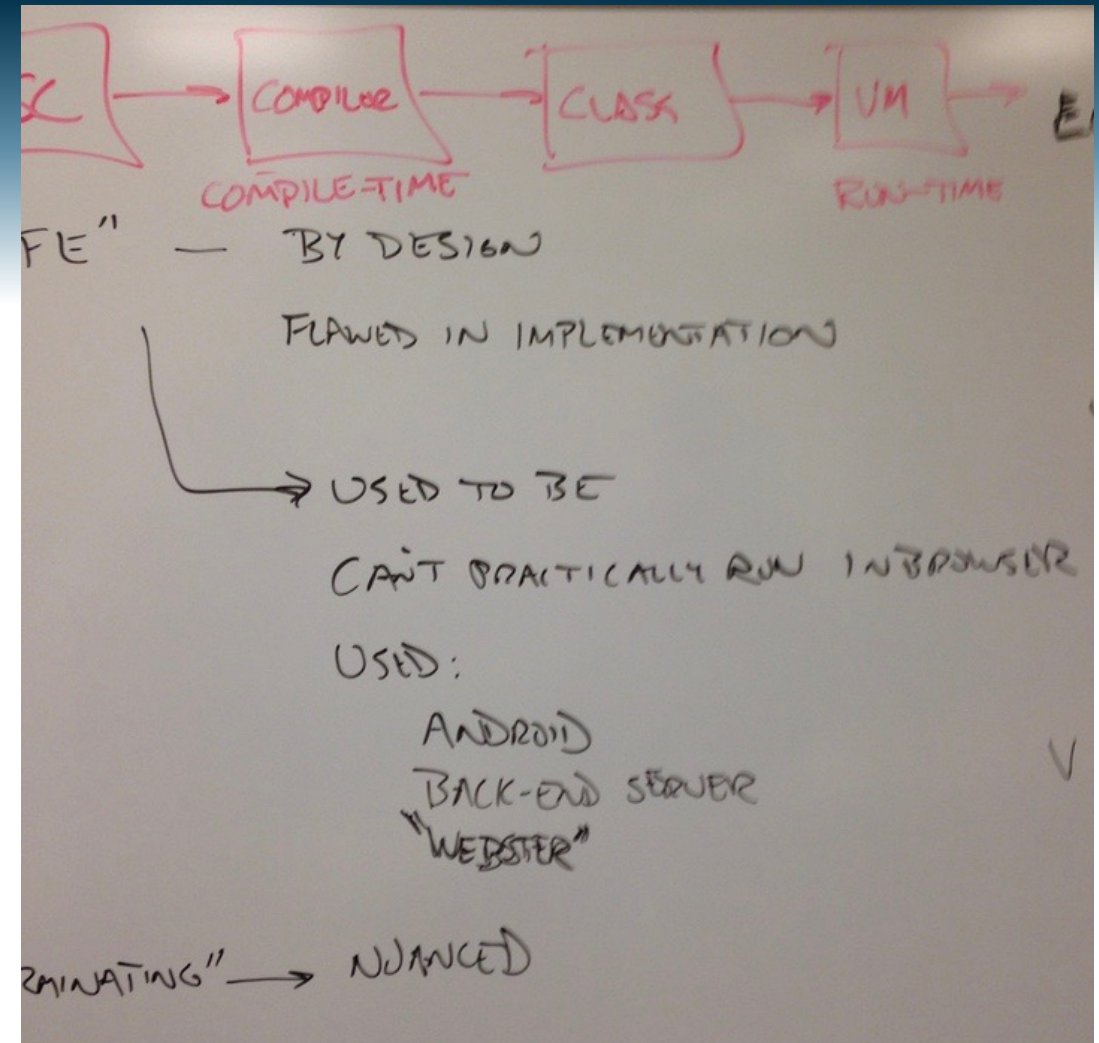 COMPILER CLASS VM
COMPILE-TIME RUN-TIME
FE" — BY DESIGN
FLAWED IN IMPLEMENTATION
USED TO BE
CAN'T PRACTICALLY RUN IN BROWSER
USED:
ANDROID
BACK-END SERVER
"WEBSTER"
RMINATING" → NUANCED